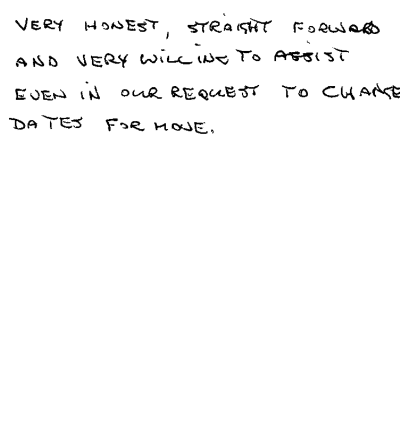 VERY HONEST, STRAIGHT FORWARD
AND VERY WILLING TO ASSIST
EVEN IN OUR REQUEST TO CHANGE
DATES FOR MOVE.